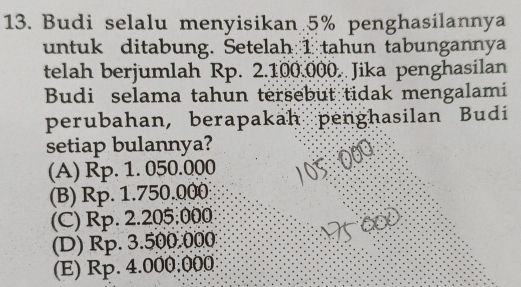 13. Budi selalu menyisikan 5% penghasilannya
untuk ditabung. Setelah 1 tahun tabungannya
telah berjumlah Rp. 2.100.000. Jika penghasilan
Budi selama tahun tersebut tidak mengalami
perubahan, berapakah penghasilan Budi
setiap bulannya?
(A) Rp. 1. 050.000
(B) Rp. 1.750.000
(C) Rp. 2.205.000
(D) Rp. 3.500.000
(E) Rp. 4.000.000
105.000
175000